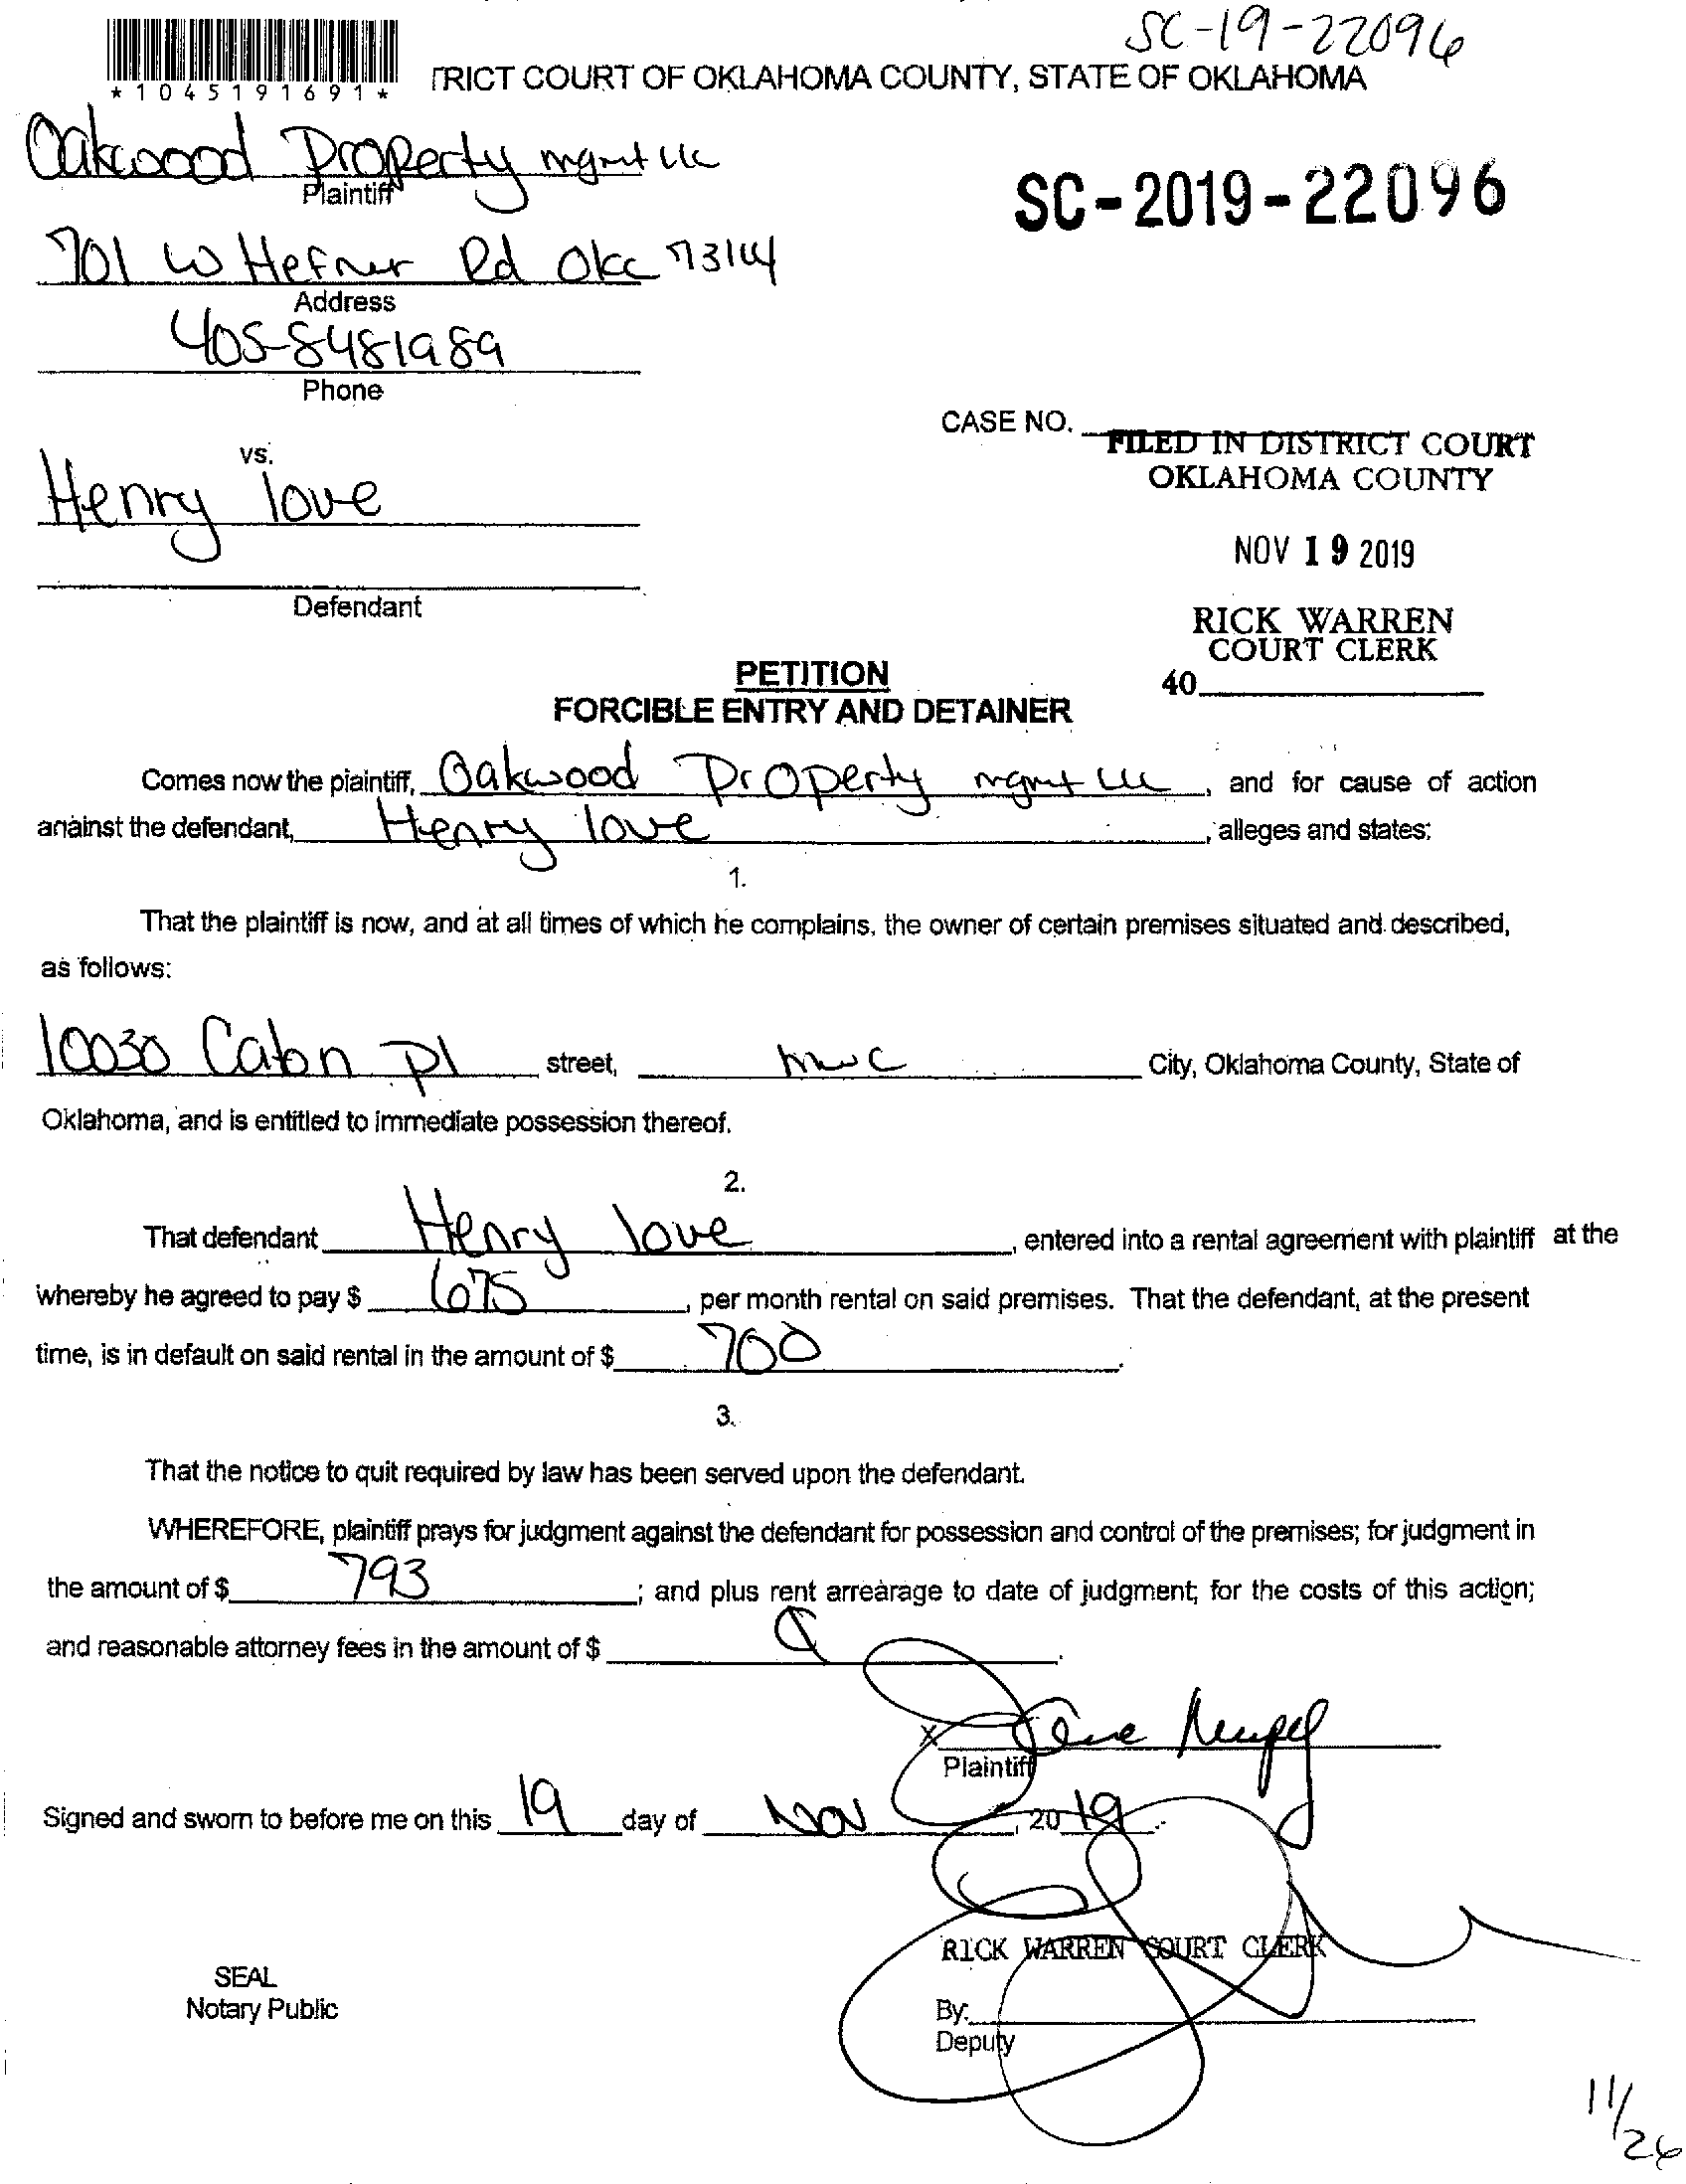 SC-19-22096
*1045191691*
TRICT COURT OF OKLAHOMA COUNTY, STATE OF OKLAHOMA
Oakwood Property mgmt llc
Plaintiff
SC-2019-22096
701 W Hefner Rd Okc 73114
Address
405-8481989
Phone
CASE NO.
FILED IN DISTRICT COURT
OKLAHOMA COUNTY
vs.
Henry love
NOV 19 2019
Defendant
RICK WARREN
COURT CLERK
40
PETITION
FORCIBLE ENTRY AND DETAINER
Comes now the plaintiff, Oakwood Property mgmt llc, and for cause of action
against the defendant, Henry love, alleges and states:
1.
That the plaintiff is now, and at all times of which he complains, the owner of certain premises situated and described,
as follows:
10030 Caton Pl street, mwc City, Oklahoma County, State of
Oklahoma, and is entitled to immediate possession thereof.
2.
That defendant Henry love, entered into a rental agreement with plaintiff at the
whereby he agreed to pay $ 675, per month rental on said premises. That the defendant, at the present
time, is in default on said rental in the amount of $ 700.
3.
That the notice to quit required by law has been served upon the defendant.
WHEREFORE, plaintiff prays for judgment against the defendant for possession and control of the premises; for judgment in
the amount of $ 793; and plus rent arrearage to date of judgment; for the costs of this action;
and reasonable attorney fees in the amount of $
X
Plaintiff
Signed and sworn to before me on this 19 day of Nov, 2019.
RICK WARREN COURT CLERK
SEAL
Notary Public
By:
Deputy
11/26